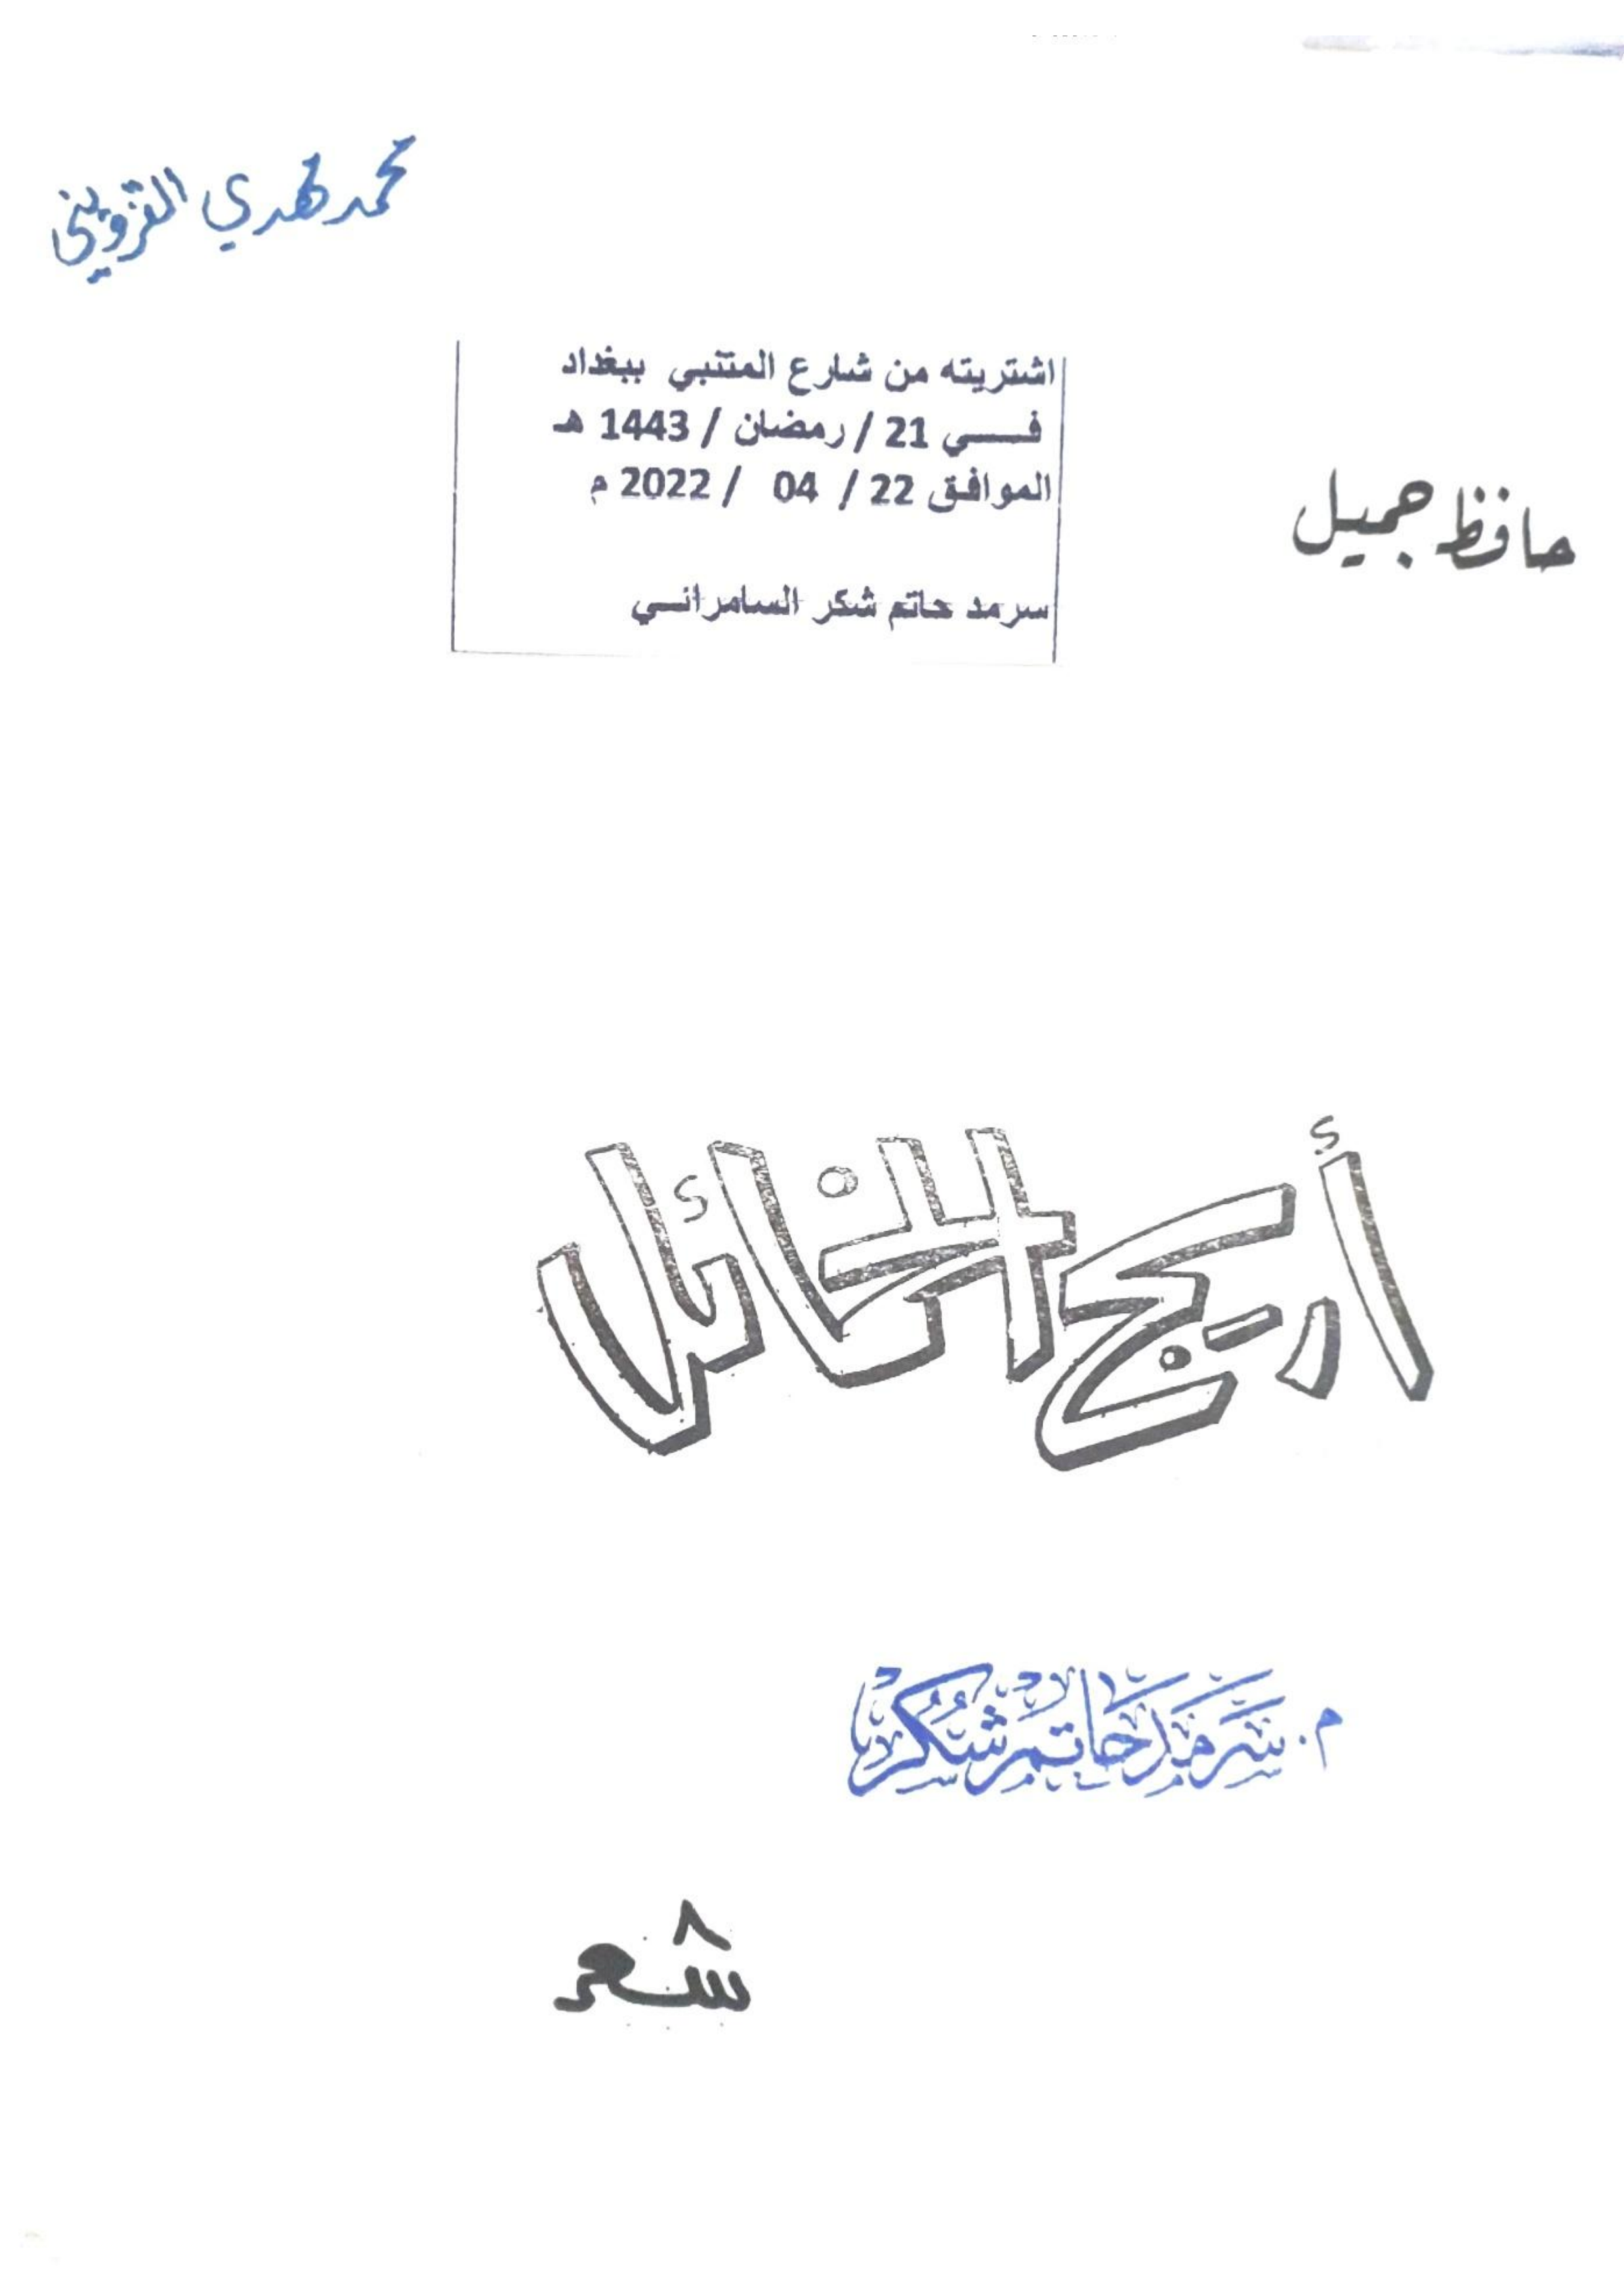 محمد مهدي القزويني
اشتريته من شارع المتنبي ببغداد
في 21 / رمضان / 1443 هـ
الموافق 22 / 04 / 2022 م
سرمد حاتم شكر السامرائي
حافظ جميل
أريج الخمائل
م. سرمد حاتم شكر
شعر